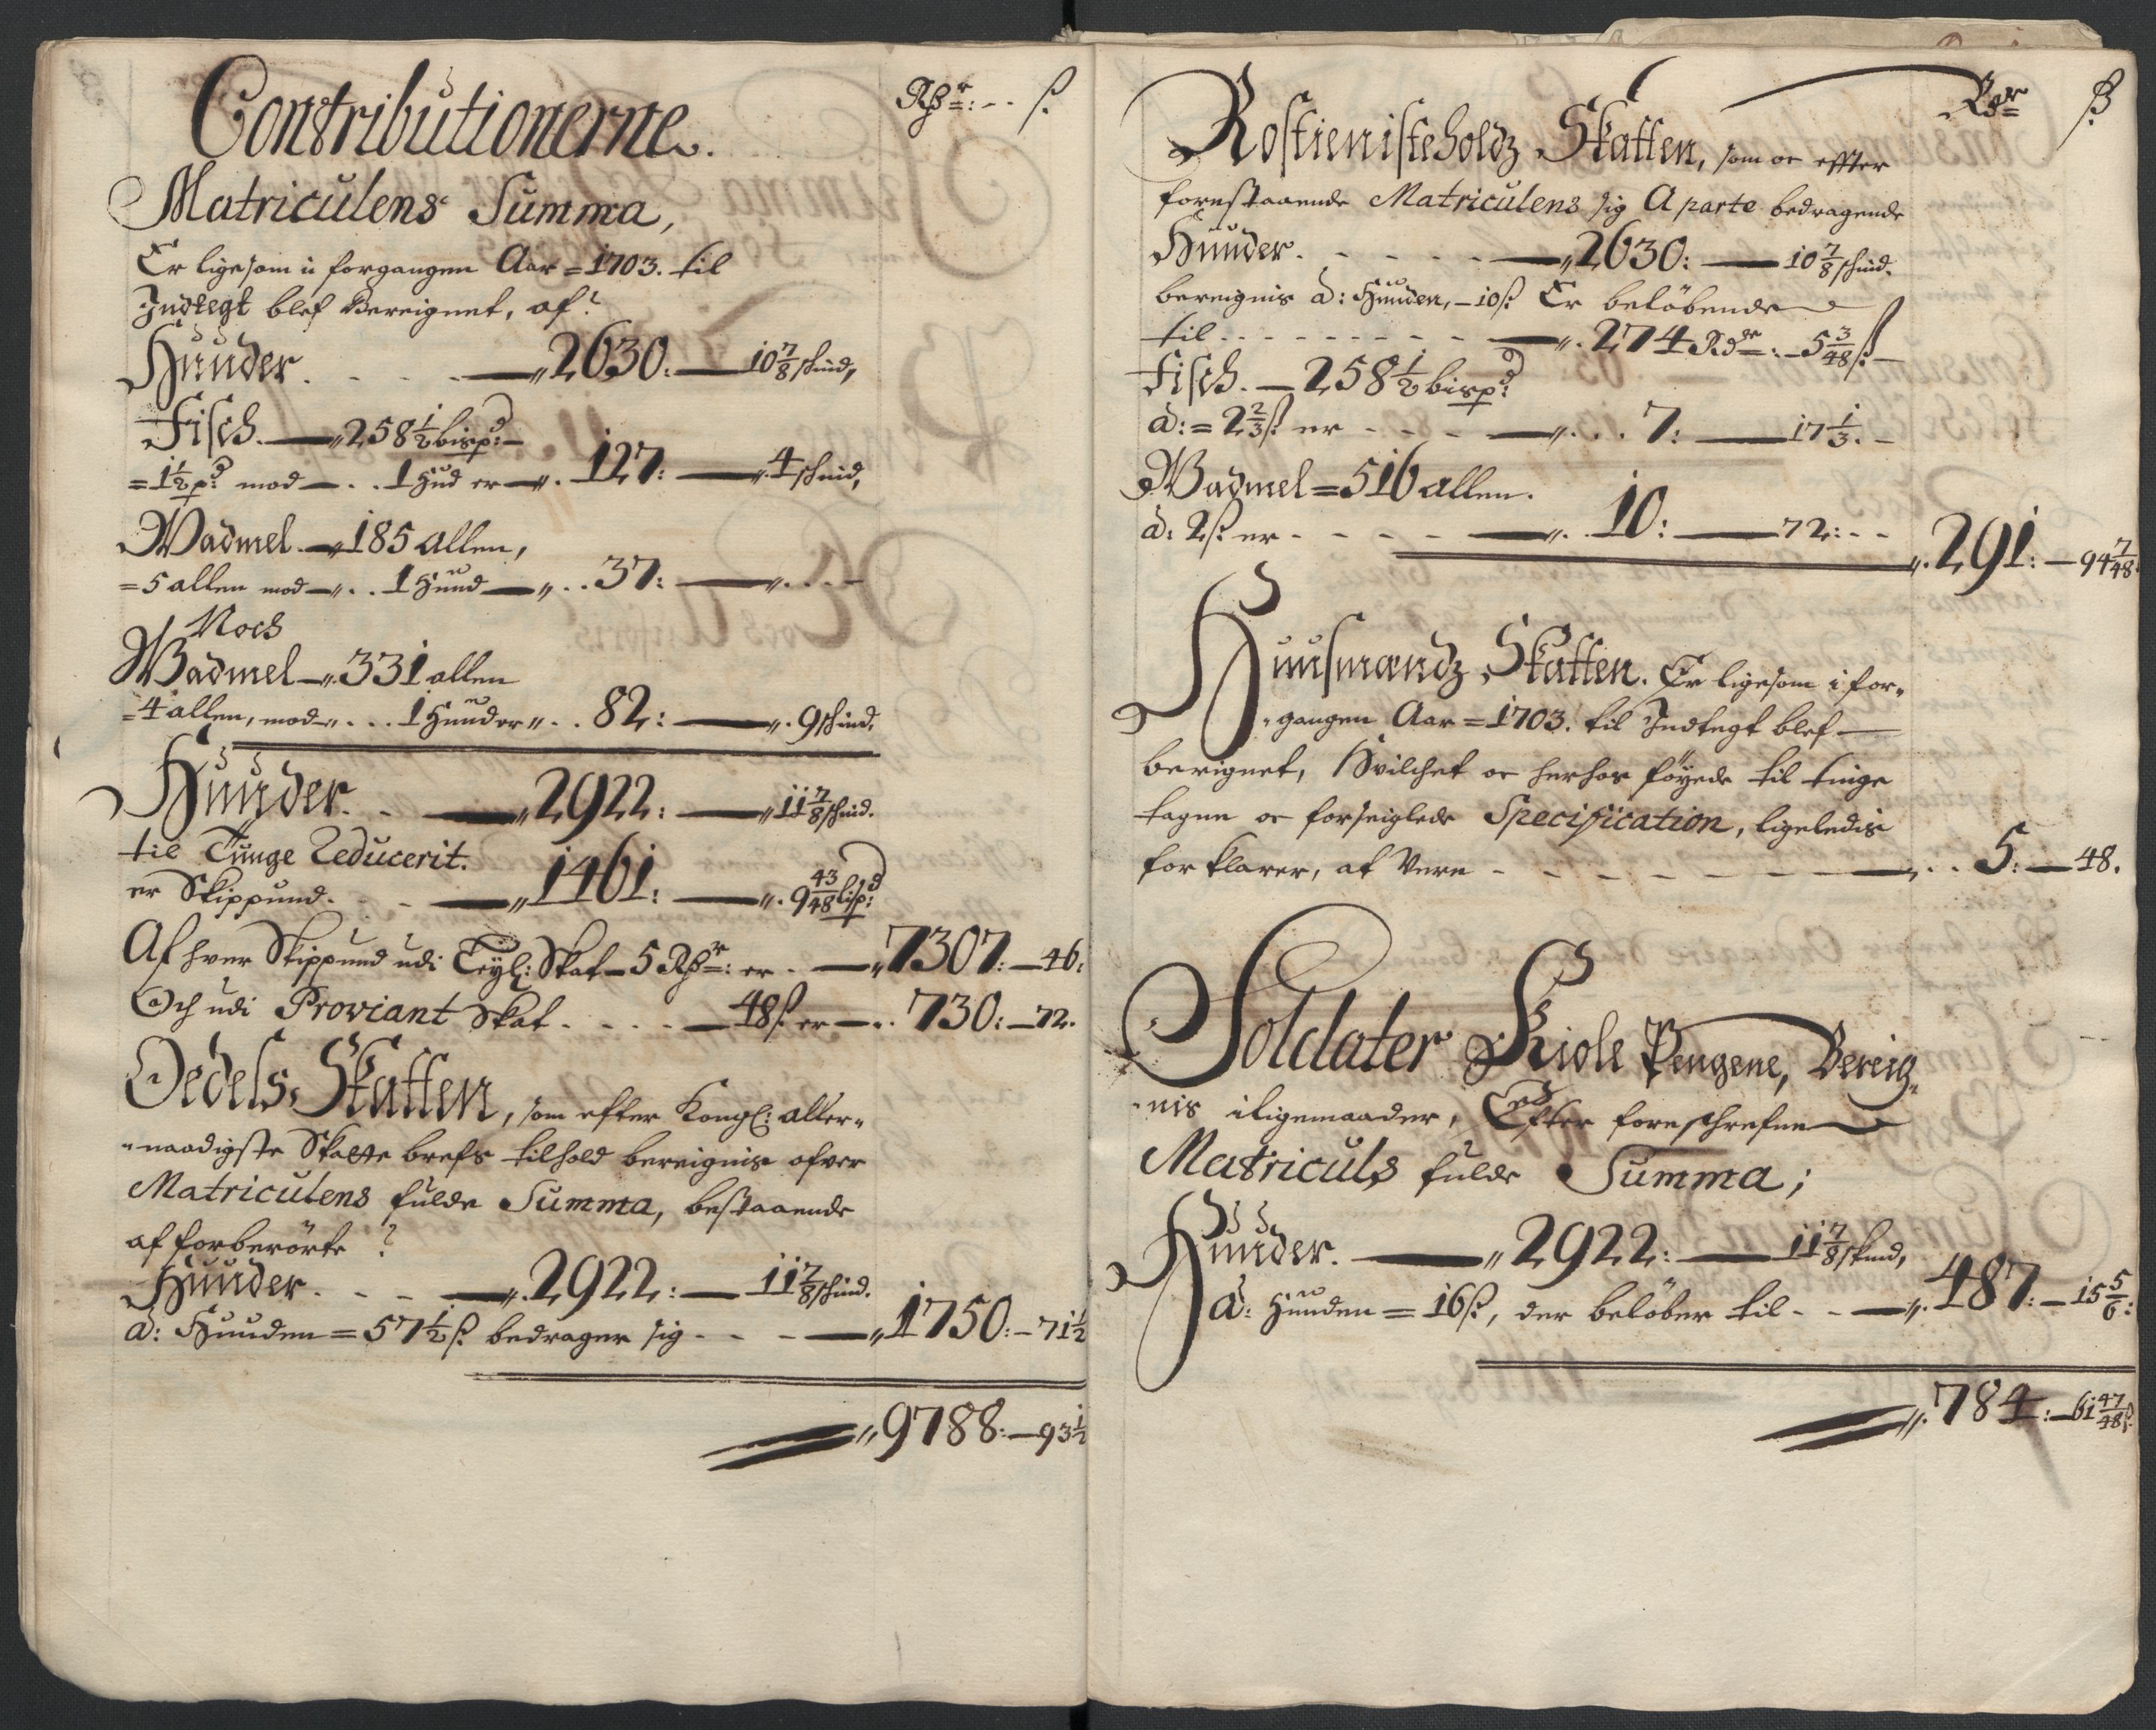 Contributionerne. Rdr: ß.
Matriculens Summa,
Er ligesom i forgangen Aar = 1703. til
Indtegt blef Bereignet, af
Huuder. 2630: 10 7/8 schind,
Fisch. 258 1/2 bispd:
= 1 1/2 pd mod 1 Hud er 127: 4 schind,
Wadmel. 185 allen,
= 5 allen mod 1 Huud 37:
Noch
Wadmel 331 allen
= 4 allen, mod 1 Huud er 82: 9 schind.
Huuder. 2922: 11 7/8 schind.
til Tunge Reducerit.
er Skippund. 1461: 9 43/48 lispd:
Af hver Skippund udi Skat 5 Rdr: er 7307: 46:
Och udi Proviant Skat 48 ß er 730: 72.
Oedels Skatten, som efter Kongl: aller-
naadigste Skatte brefs tilhold bereignis ofver
Matriculens fulde Summa, bestaaende
af forberørte
Huuder. 2922: 11 7/8 schind.
a: Huuden = 57 1/2 ß bedrager sig 1750: 71 1/2
9788: 93 1/2
Rdr ß
Rostieniste holdz Skatten, som oc effter
forestaaende Matriculens sig A parte bedragende
Huuder. 2630: 10 7/8 schind.
bereignis a: Huuden, 10 ß Er beløbende
til 274 Rdr: 5 3/48 ß
Fisch. 258 1/2 bispd:
a: = 2 2/3 ß er 7: 17 1/3.
Wadmel = 516 allen.
a: 2 ß er 10: 72: 291: 94 7/48
Huusmændz Skatten. Er ligesom i for-
gangen Aar = 1703. til Indtegt blef
berignet, Hvilchet oc herhos føyede til tinge
tagne oc forseiglede Specification, ligeledis
forklarer, at Vere 5: 48.
Soldater Kiole Pengene, Bereig-
nis iligemaader, Efter foreschrefne
Matriculs fulde Summa;
Huuder. 2922: 11 7/8 skind,
a: Huuden = 16 ß, der beløber til 487: 15 5/6:
784: 61 47/48 ß